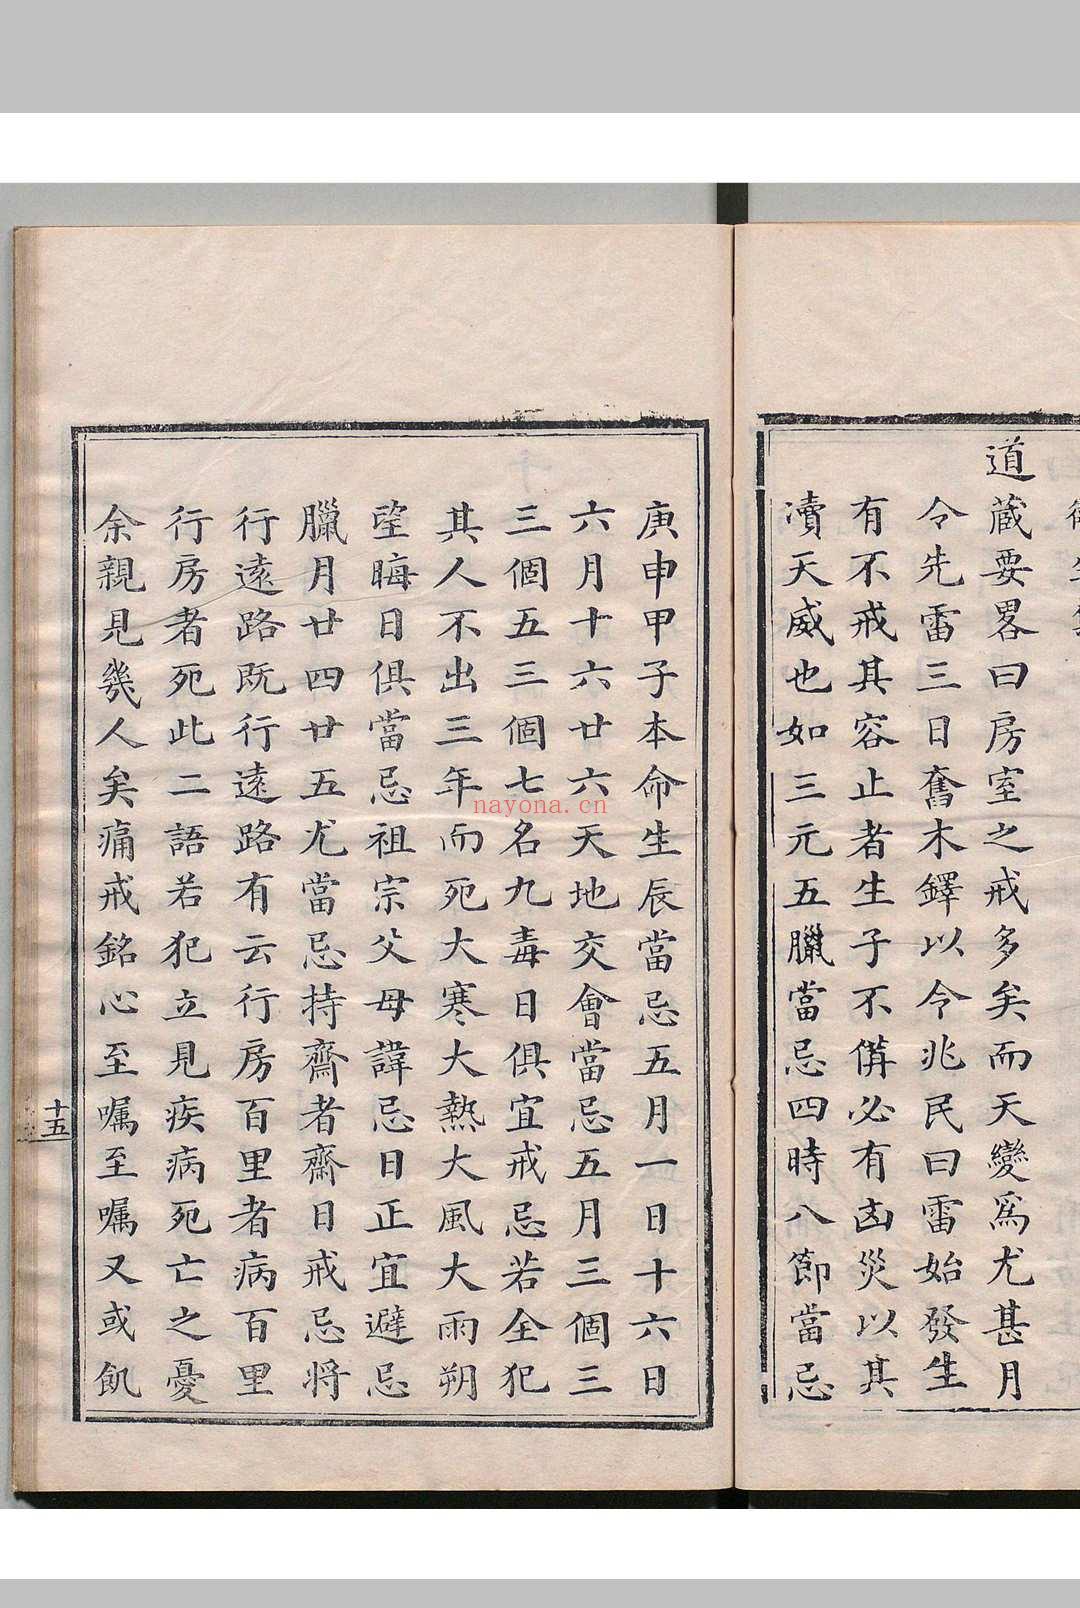 道藏要畧曰房室之戒多矣而天變爲尤甚月
令先雷三日奮木鐸以令兆民曰雷始發生
有不戒其容止者生子不備必有凶災以其
瀆天威也如三元五臘當忌四時八節當忌
庚申甲子本命生辰當忌五月一日十六日
六月十六廿六天地交會當忌五月三個三
三個五三個七名九毒日俱宜戒忌若全犯
其人不出三年而死大寒大熱大風大雨朔
望晦日俱當忌祖宗父母諱忌日正宜避忌
臘月廿四廿五尤當忌持齋者齋日戒忌將
行遠路既行遠路有云行房百里者病百里
行房者死此二語若犯立見疾病死亡之憂
余親見幾人矣痛戒銘心至嘱至嘱又或飢
十五
nayona.cn